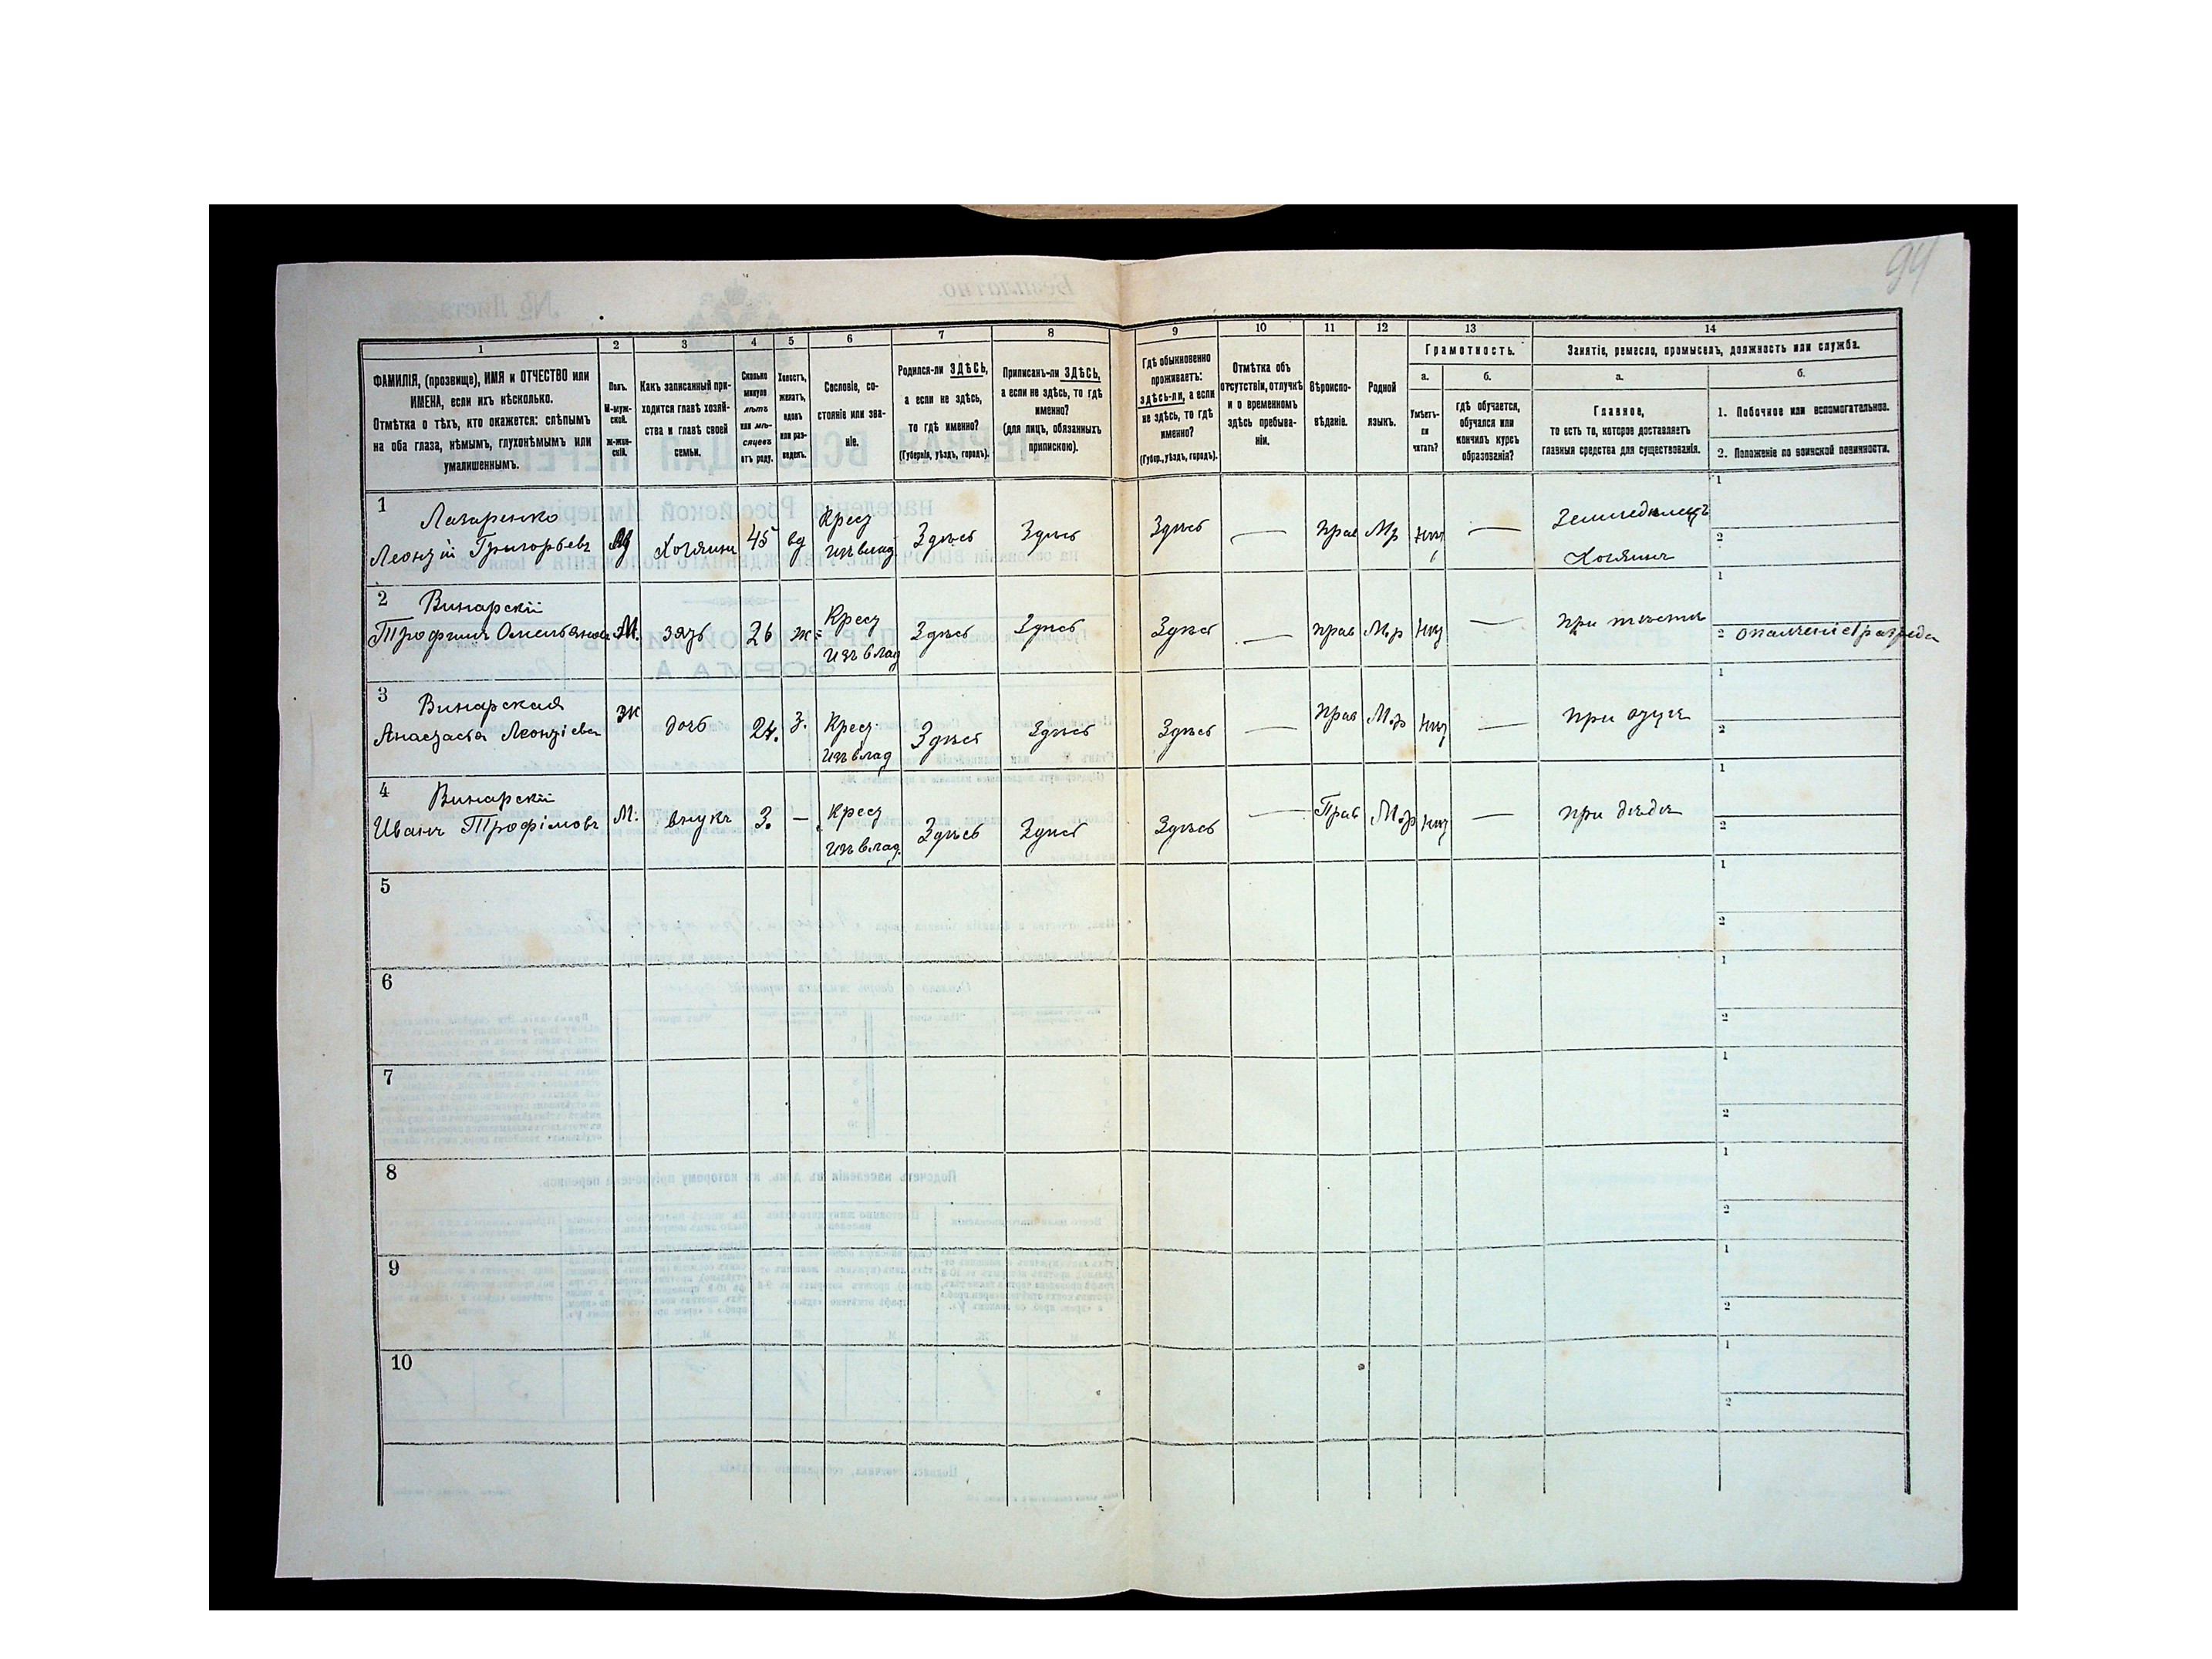 94
1 2 3 4 5 6 7 8 9 10 11 12 13 14
ФАМИЛІЯ, (прозвище), ИМЯ и ОТЧЕСТВО или
ИМЕНА, если ихъ нѣсколько.
Отмѣтка о тѣхъ, кто окажется: слѣпымъ
на оба глаза, нѣмымъ, глухонѣмымъ или
умалишеннымъ.
Полъ.
М-муж-
ской.
Ж-жен-
скій.
Какъ записанный при-
ходится главѣ хозяй-
ства и главѣ своей
семьи.
Сколько
минуло
лѣтъ
или мѣ-
сяцевъ
отъ роду.
Холостъ,
женатъ,
вдовъ
или раз-
веденъ.
Сословіе, со-
стояніе или зва-
ніе.
Родился-ли ЗДѢСЬ,
а если не здѣсь,
то гдѣ именно?
(Губернія, уѣздъ, городъ).
Приписанъ-ли ЗДѢСЬ,
а если не здѣсь, то гдѣ
именно?
(для лицъ, обязанныхъ
припискою).
Гдѣ обыкновенно
проживаетъ:
здѣсь-ли, а если
не здѣсь, то гдѣ
именно?
(Губер., уѣздъ, городъ).
Отмѣтка объ
отсутствіи, отлучкѣ
и о временномъ
здѣсь пребыва-
ніи.
Вѣроиспо-
вѣданіе.
Родной
языкъ.
Грамотность.
а.
Умѣетъ-
ли
читать?
б.
гдѣ обучается,
обучался или
кончилъ курсъ
образованія?
Занятіе, ремесло, промыселъ, должность или служба.
а.
Главное,
то есть то, которое доставляетъ
главныя средства для существованія.
б.
1. Побочное или вспомогательное.
2. Положеніе по воинской повинности.
1 Лазаренко Крест Земледѣлецъ 1
Леонтій Григорьевъ М Хозяинъ 45 вд изъ влад Здѣсь Здѣсь Здѣсь — прав Мр нѣт — 2
Хозяинъ
2 Винарскій Крест 1
Трофимъ Омельянов М. зять 26 ж= изъ влад Здѣсь Здѣсь Здѣсь — прав М.р нѣт — при тестѣ 2 ополченіе I разряда
3 Винарская 1
Анастасія Леонтіева ж дочь 24. з. Крест изъ влад Здѣсь Здѣсь Здѣсь — прав М.р нѣт — при отцѣ 2
4 Винарскій 1
Иванъ Трофимовъ М. внукъ 3. — Крест изъ влад. Здѣсь Здѣсь Здѣсь — Прав М.р нѣт — при дѣдѣ 2
5 1
2
6 1
2
7 1
2
8 1
2
9 1
2
10 1
2